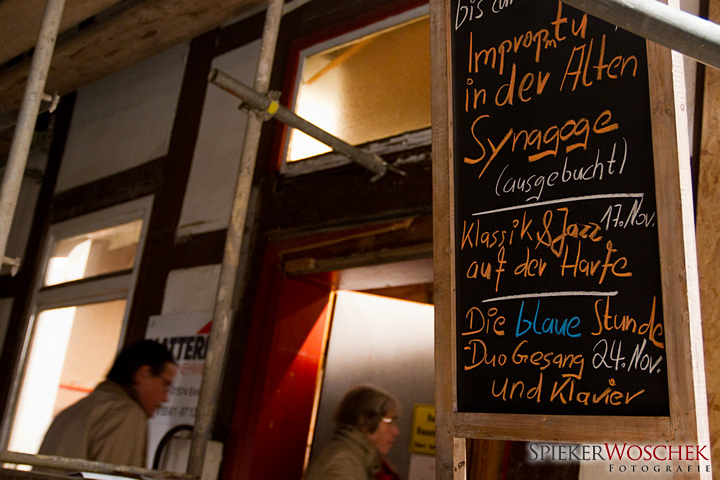 bis zum
Impromtu
in der Alten
Synagoge
(ausgebucht)
Klassik & Jazz 17. Nov.
auf der Harfe
Die blaue Stunde
Duo Gesang 24. Nov.
und Klavier
SPIEKERWOSCHEK
FOTOGRAFIE